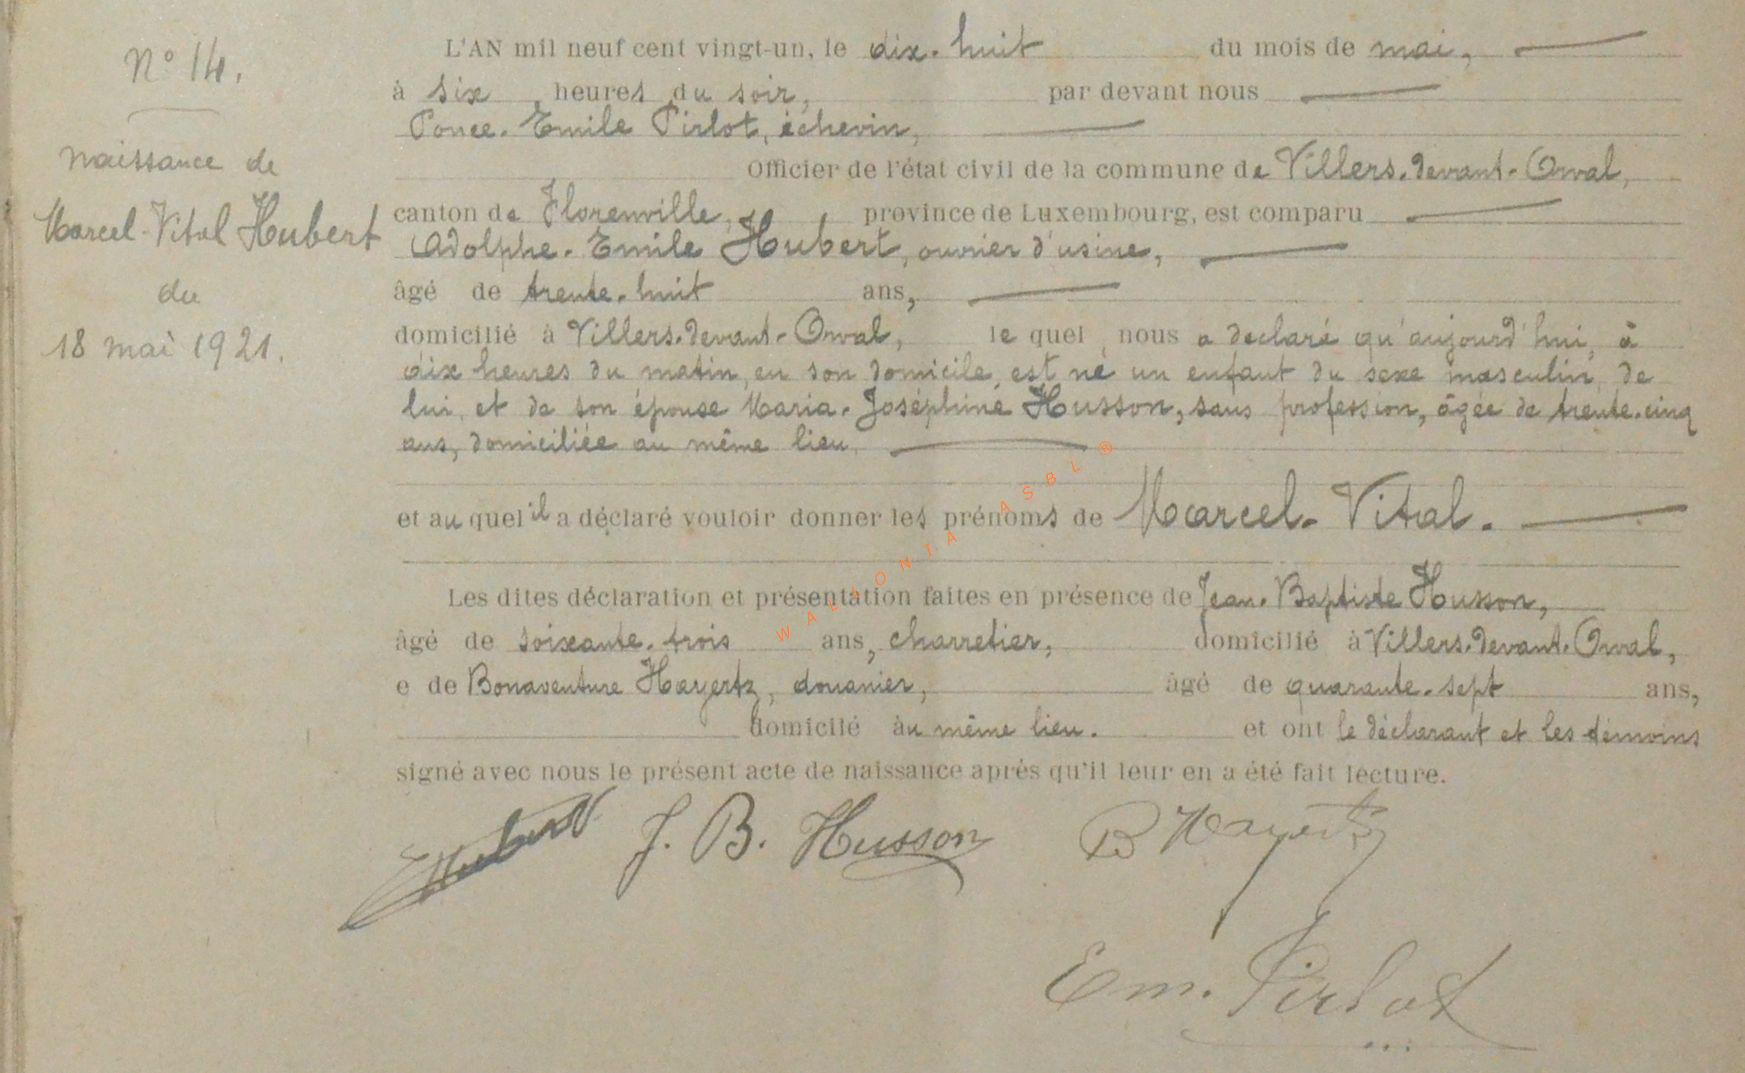 N° 14.
Naissance de
Marcel-Vital Hubert
du
18 mai 1921.
L'AN mil neuf cent vingt-un, le dix-huit du mois de mai,
à six heures du soir, par devant nous
Ponce-Emile Pirlot, échevin,
Officier de l'état civil de la commune de Villers-devant-Orval,
canton de Florenville, province de Luxembourg, est comparu
Adolphe-Emile Hubert, ouvrier d'usine,
âgé de trente-huit ans,
domicilié à Villers-devant-Orval, le quel nous a déclaré qu'aujourd'hui, à
dix heures du matin, en son domicile, est né un enfant du sexe masculin, de
lui, et de son épouse Maria-Joséphine Husson, sans profession, âgée de trente-cinq
ans, domiciliée au même lieu,
et au quel il a déclaré vouloir donner les prénoms de Marcel-Vital.
Les dites déclaration et présentation faites en présence de Jean-Baptiste Husson,
âgé de soixante-trois ans, charretier, domicilié à Villers-devant-Orval,
e de Bonaventure Hayertz, douanier, âgé de quarante-sept ans,
domicilé au même lieu. et ont le déclarant et les témoins
signé avec nous le présent acte de naissance après qu'il leur en a été fait lecture.
Hubert J. B. Husson B Hayertz
Em. Pirlot
WALLONIA ASBL ®